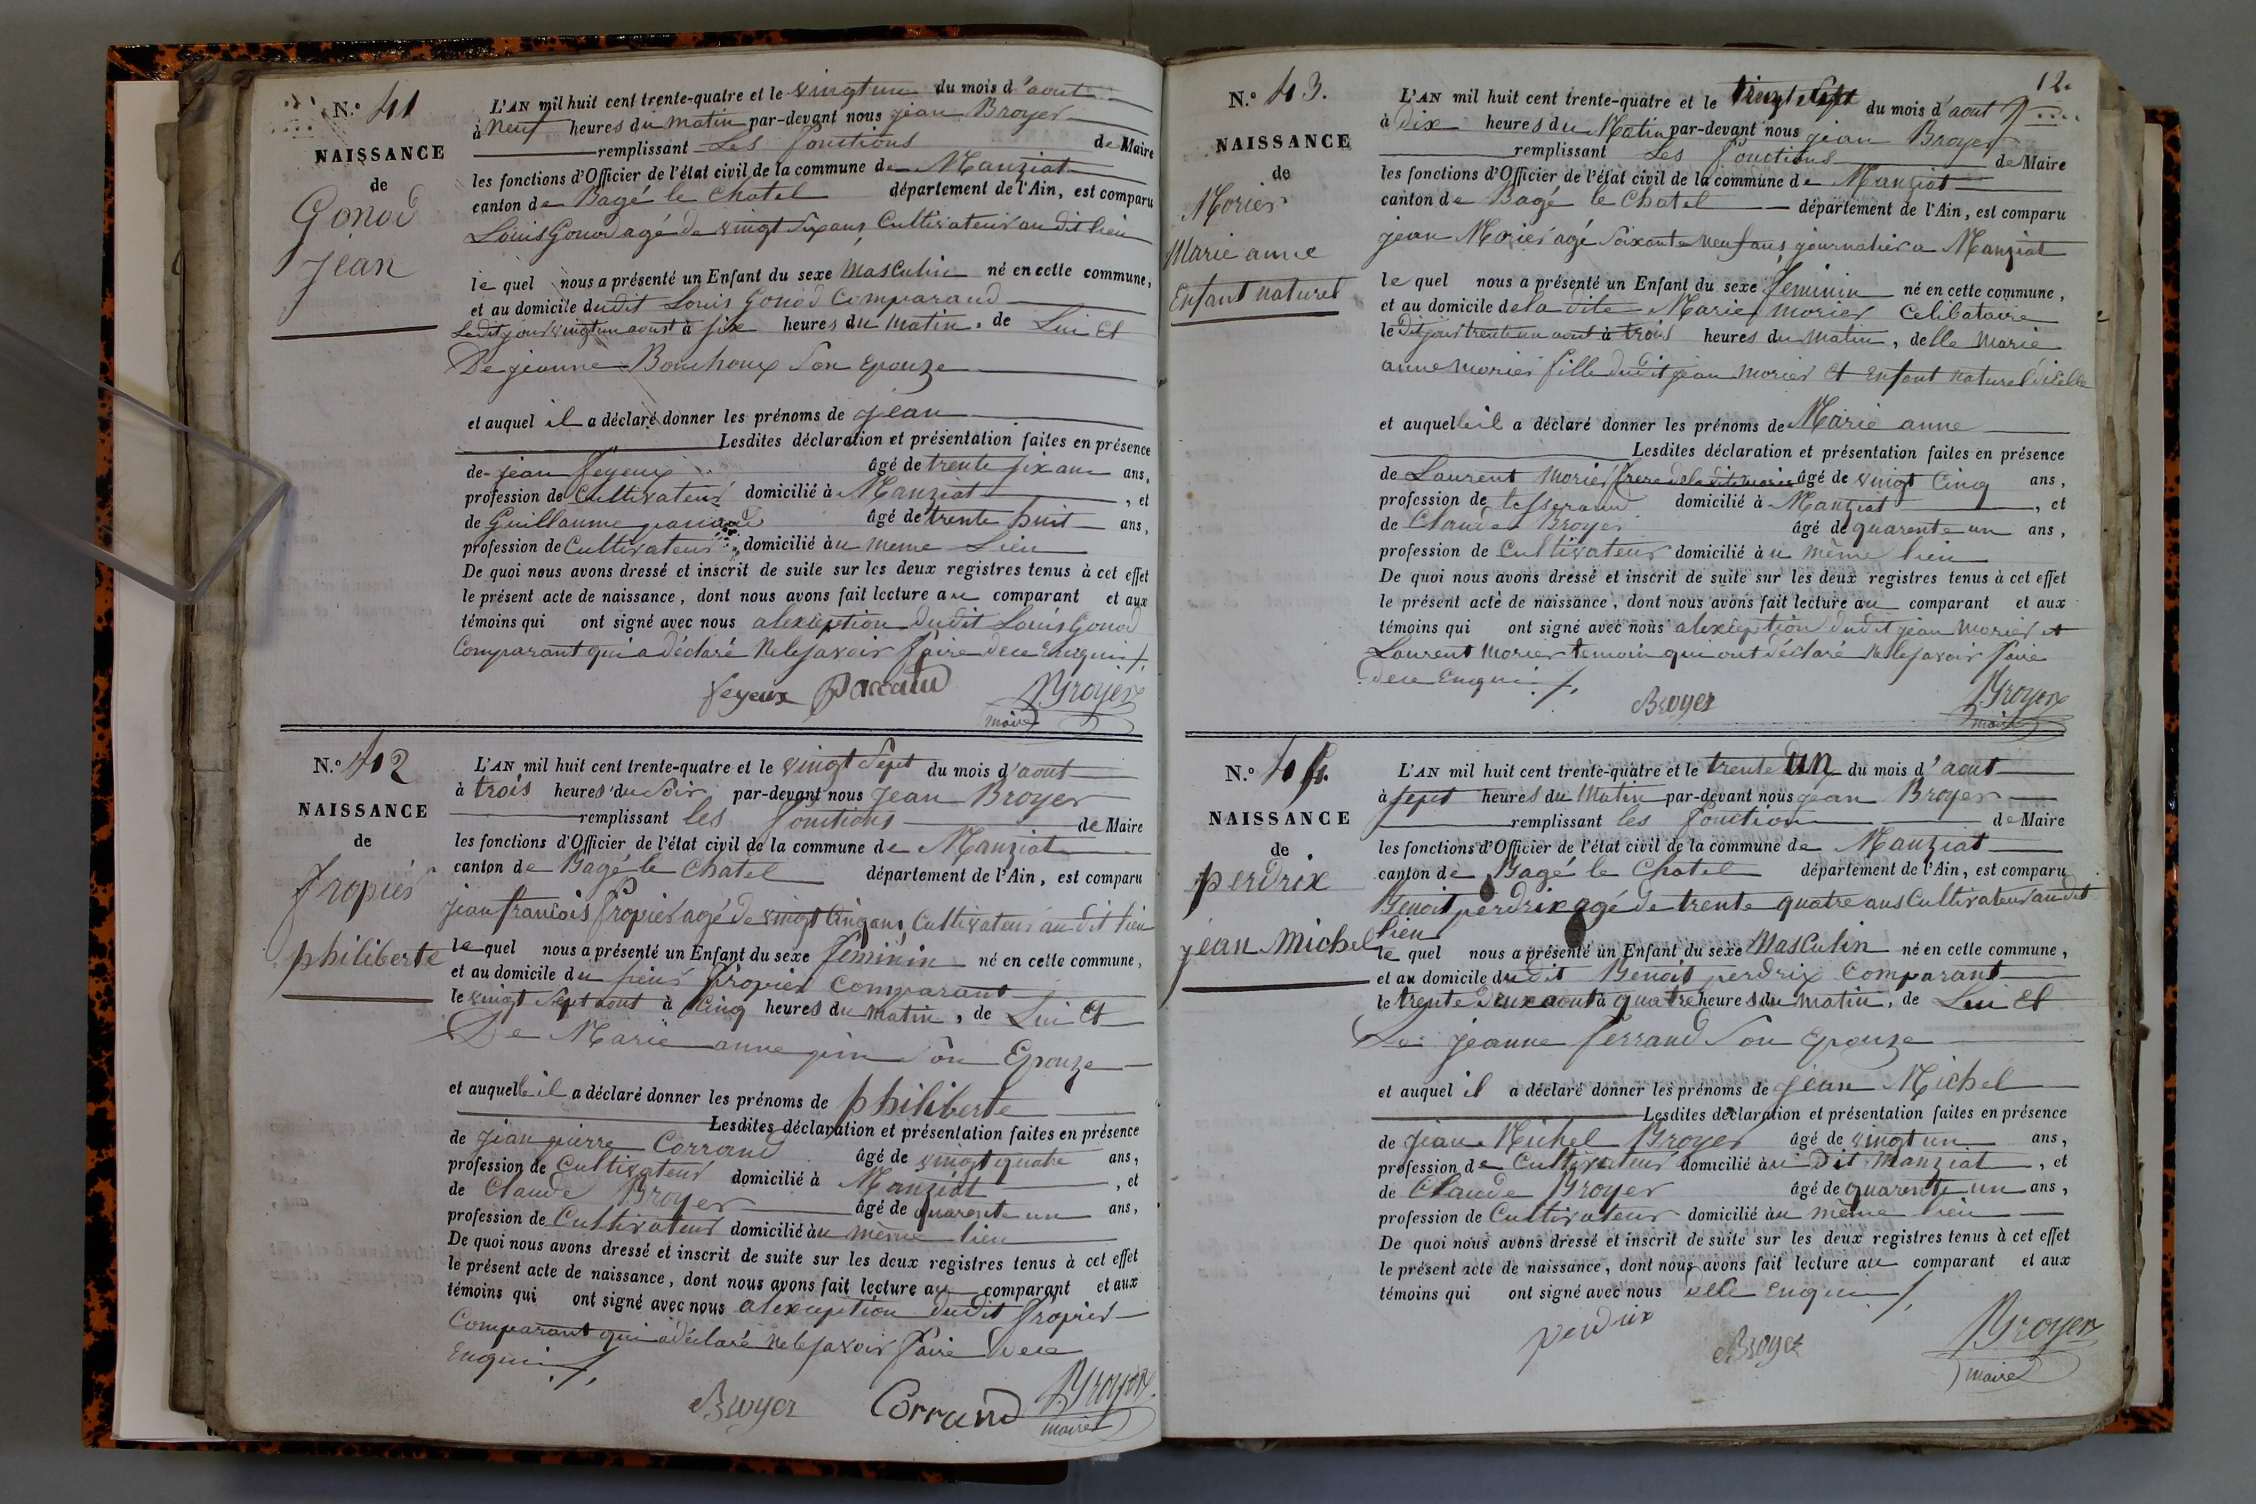 N.º 41
NAISSANCE
de
Gonod
Jean
L'AN mil huit cent trente-quatre et le vingt un du mois d'aout
à Neuf heures du matin par-devant nous jean Broyer
remplissant Les fonctions de Maire
les fonctions d'Officier de l'état civil de la commune de Manziat
canton de Bagé le Chatel département de l'Ain, est comparu
Louis Gonod agé de vingt six ans, Cultivateur au dit lieu
le quel nous a présenté un Enfant du sexe Masculin né en cette commune,
et au domicile du dit Louis Gonod Comparand
Ledit jour vingt un aoust à six heures du matin, de Lui Et
De jeanne Bouchoux Son Epouze
et auquel il a déclaré donner les prénoms de jean
Lesdites déclaration et présentation faites en présence
de jean feyeux âgé de trente six ans ans,
profession de Cultivateur domicilié à Manziat, et
de Guillaume âgé de trente huit ans,
profession de Cultivateur domicilié au meme Lieu
De quoi nous avons dressé et inscrit de suite sur les deux registres tenus à cet effet
le présent acte de naissance, dont nous avons fait lecture au comparant et aux
témoins qui ont signé avec nous alexception dudit Louis Gonod
Comparant qui a déclaré Ne le savoir faire dece Enquis
feyeux Broyer
maire
N.º 42
NAISSANCE
de
fropier
philiberte
L'AN mil huit cent trente-quatre et le vingt Sept du mois d'aout
à trois heures du Soir par-devant nous Jean Broyer
remplissant les fonctions de Maire
les fonctions d'Officier de l'état civil de la commune de Manziat
canton de Bagé le Chatel département de l'Ain, est comparu
jean francois fropier agé de vingt Cinq ans, Cultivateur au dit lieu
le quel nous a présenté un Enfant du sexe feminin né en cette commune,
et au domicile du sieur fropier Comparant
le vingt Sept aout à Cinq heures du Matin, de Lui Et
De Marie anne Son Epouze
et auquelle il a déclaré donner les prénoms de philiberte
Lesdites déclaration et présentation faites en présence
de jean pierre Corrand âgé de vingt quatre ans,
profession de Cultivateur domicilié à Manziat, et
de Claude Broyer âgé de quarente un ans,
profession de Cultivateur domicilié au mème lieu
De quoi nous avons dressé et inscrit de suite sur les deux registres tenus à cet effet
le présent acte de naissance, dont nous avons fait lecture au comparant et aux
témoins qui ont signé avec nous alexception dudit fropier
Comparant qui a déclaré Ne le savoir faire Dece
Enquis
Broyer Corrand Broyer
maire
12.
N.º 43.
NAISSANCE
de
Morier
Marie anne
Enfant naturel
L'AN mil huit cent trente-quatre et le du mois d'aout
à Dix heures du Matin par-devant nous jean Broyer
remplissant Les fonctions de Maire
les fonctions d'Officier de l'état civil de la commune de Manziat
canton de Bagé le Chatel département de l'Ain, est comparu
jean Morier agé Soixante neuf ans journalier a Manziat
le quel nous a présenté un Enfant du sexe feminin né en cette commune,
et au domicile de la dite Marie morier Celibataire
le Dit jour trente un aout à trois heures du Matin, delle Marie
anne morier fille dudit jean morier Et Enfant naturel dicelle
et auquelle il a déclaré donner les prénoms de Marie anne
Lesdites déclaration et présentation faites en présence
de Laurent Morier frere de la dite marie âgé de vingt Cinq ans,
profession de tesserand domicilié à Manziat, et
de Claude Broyer âgé de quarente un ans,
profession de Cultivateur domicilié au même lieu
De quoi nous avons dressé et inscrit de suite sur les deux registres tenus à cet effet
le présent acte de naissance, dont nous avons fait lecture au comparant et aux
témoins qui ont signé avec nous alexception dudit jean Morier et
Laurent Morier temoin qui ont déclaré Ne le savoir faire
dece Enquis
Broyer Broyer
maire
N.º 44.
NAISSANCE
de
perdrix
jean Michel
L'AN mil huit cent trente-quatre et le trente un du mois d'aout
à sept heures du Matin par-devant nous jean Broyer
remplissant les fonction de Maire
les fonctions d'Officier de l'état civil de la commune de Manziat
canton de Bagé le Chatel département de l'Ain, est comparu
Benoit perdrix agé de trente quatre ans Cultivateur au dit
lieu
le quel nous a présenté un Enfant du sexe Masculin né en cette commune,
et au domicile dudit Benoit perdrix Comparant
le trente aout à quatre heures du matin, de Lui Et
De jeanne ferrand Son Epouze
et auquel il a déclaré donner les prénoms de jean Michel
Lesdites déclaration et présentation faites en présence
de jean Michel Broyer âgé de vingt un ans,
profession de Cultivateur domicilié au Dit Manziat, et
de Claude Broyer âgé de quarente un ans,
profession de Cultivateur domicilié au même lieu
De quoi nous avons dressé et inscrit de suite sur les deux registres tenus à cet effet
le présent acte de naissance, dont nous avons fait lecture au comparant et aux
témoins qui ont signé avec nous Enquis
perdrix Broyer Broyer
maire